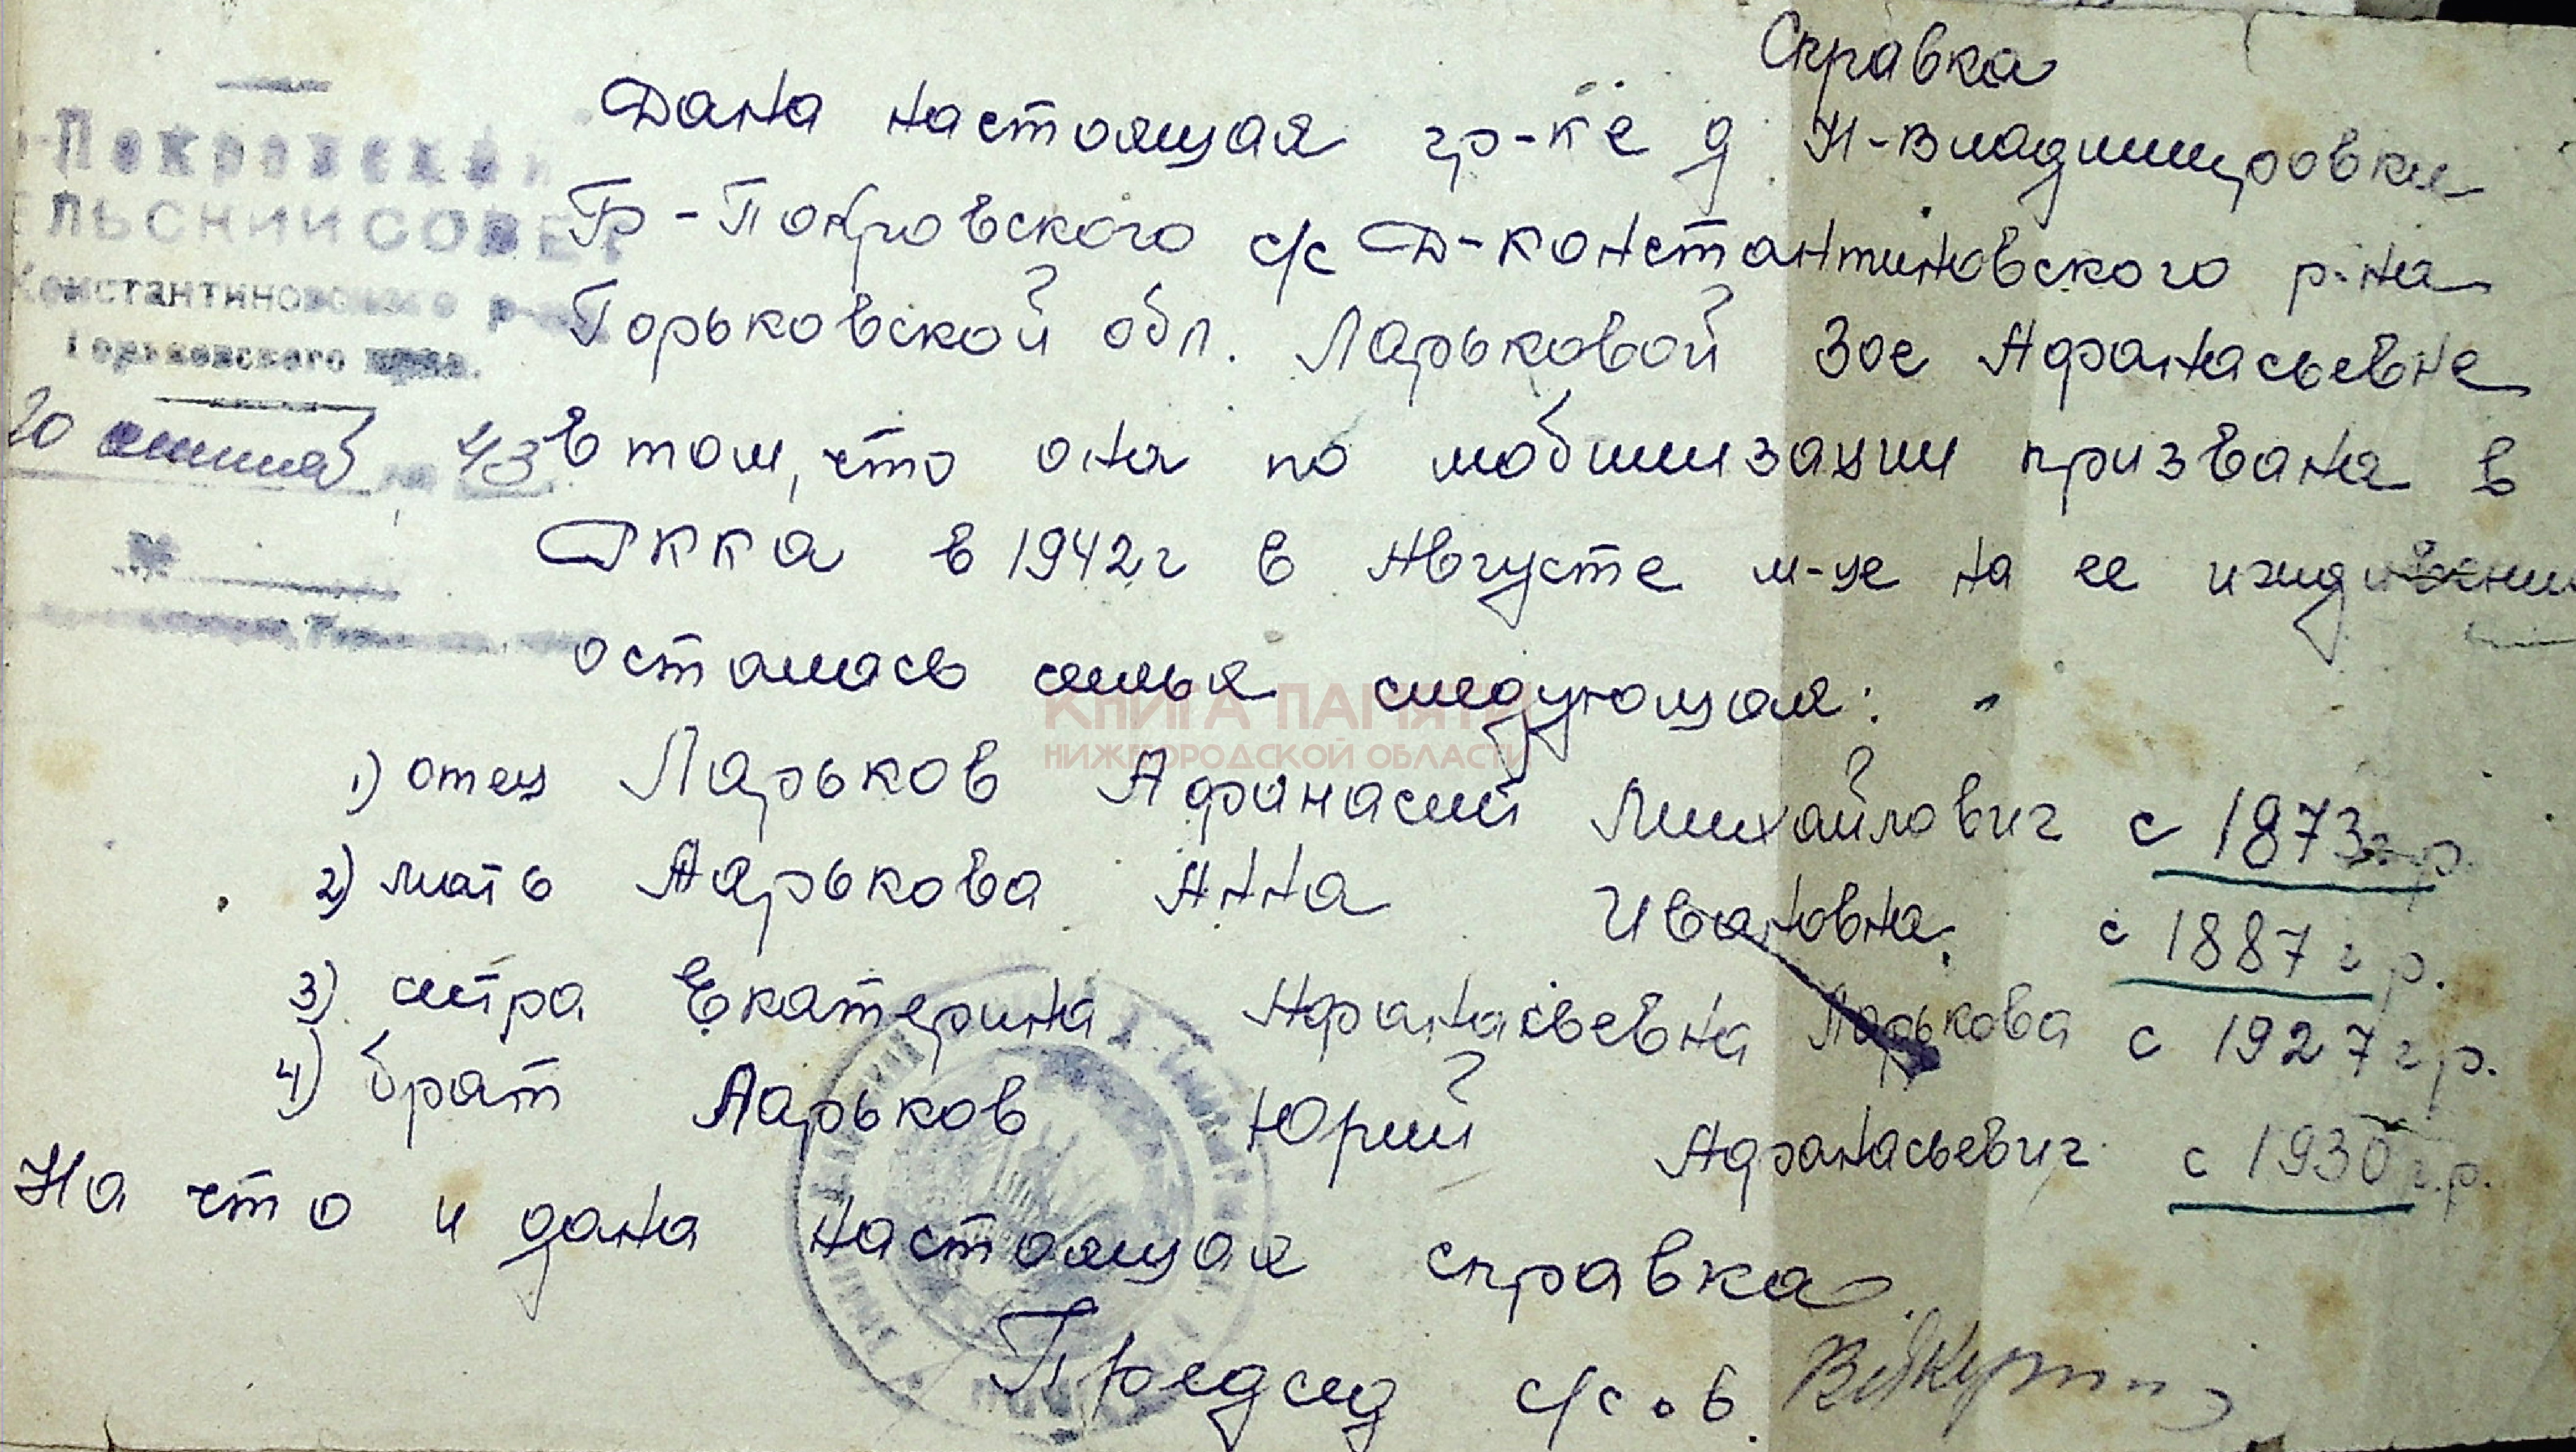 Справка
Дана настоящая гр-ке д. Н-Владимировки
Б-Покровского с/с Д-Константиновского р-на
Горьковской обл. Ларьковой Зое Афанасьевне
в том, что она по мобилизации призвана в
РККА в 1942 г в Августе м-це на ее иждивении
осталась семья следующая:
1) отец Ларьков Афанасий Михайлович с 1873 г.р.
2) мать Ларькова Анна Ивановна с 1887 г.р.
3) сестра Екатерина Афанасьевна Ларькова с 1927 г.р.
4) брат Ларьков Юрий Афанасьевич с 1930 г.р.
На что и дана настоящая справка.
Председ с/с.
-Покровский
ЕЛЬСКИЙ СОВЕТ
Константиновского р-на
Горьковского края.
20 43
№
КНИГА ПАМЯТИ
НИЖЕГОРОДСКОЙ ОБЛАСТИ